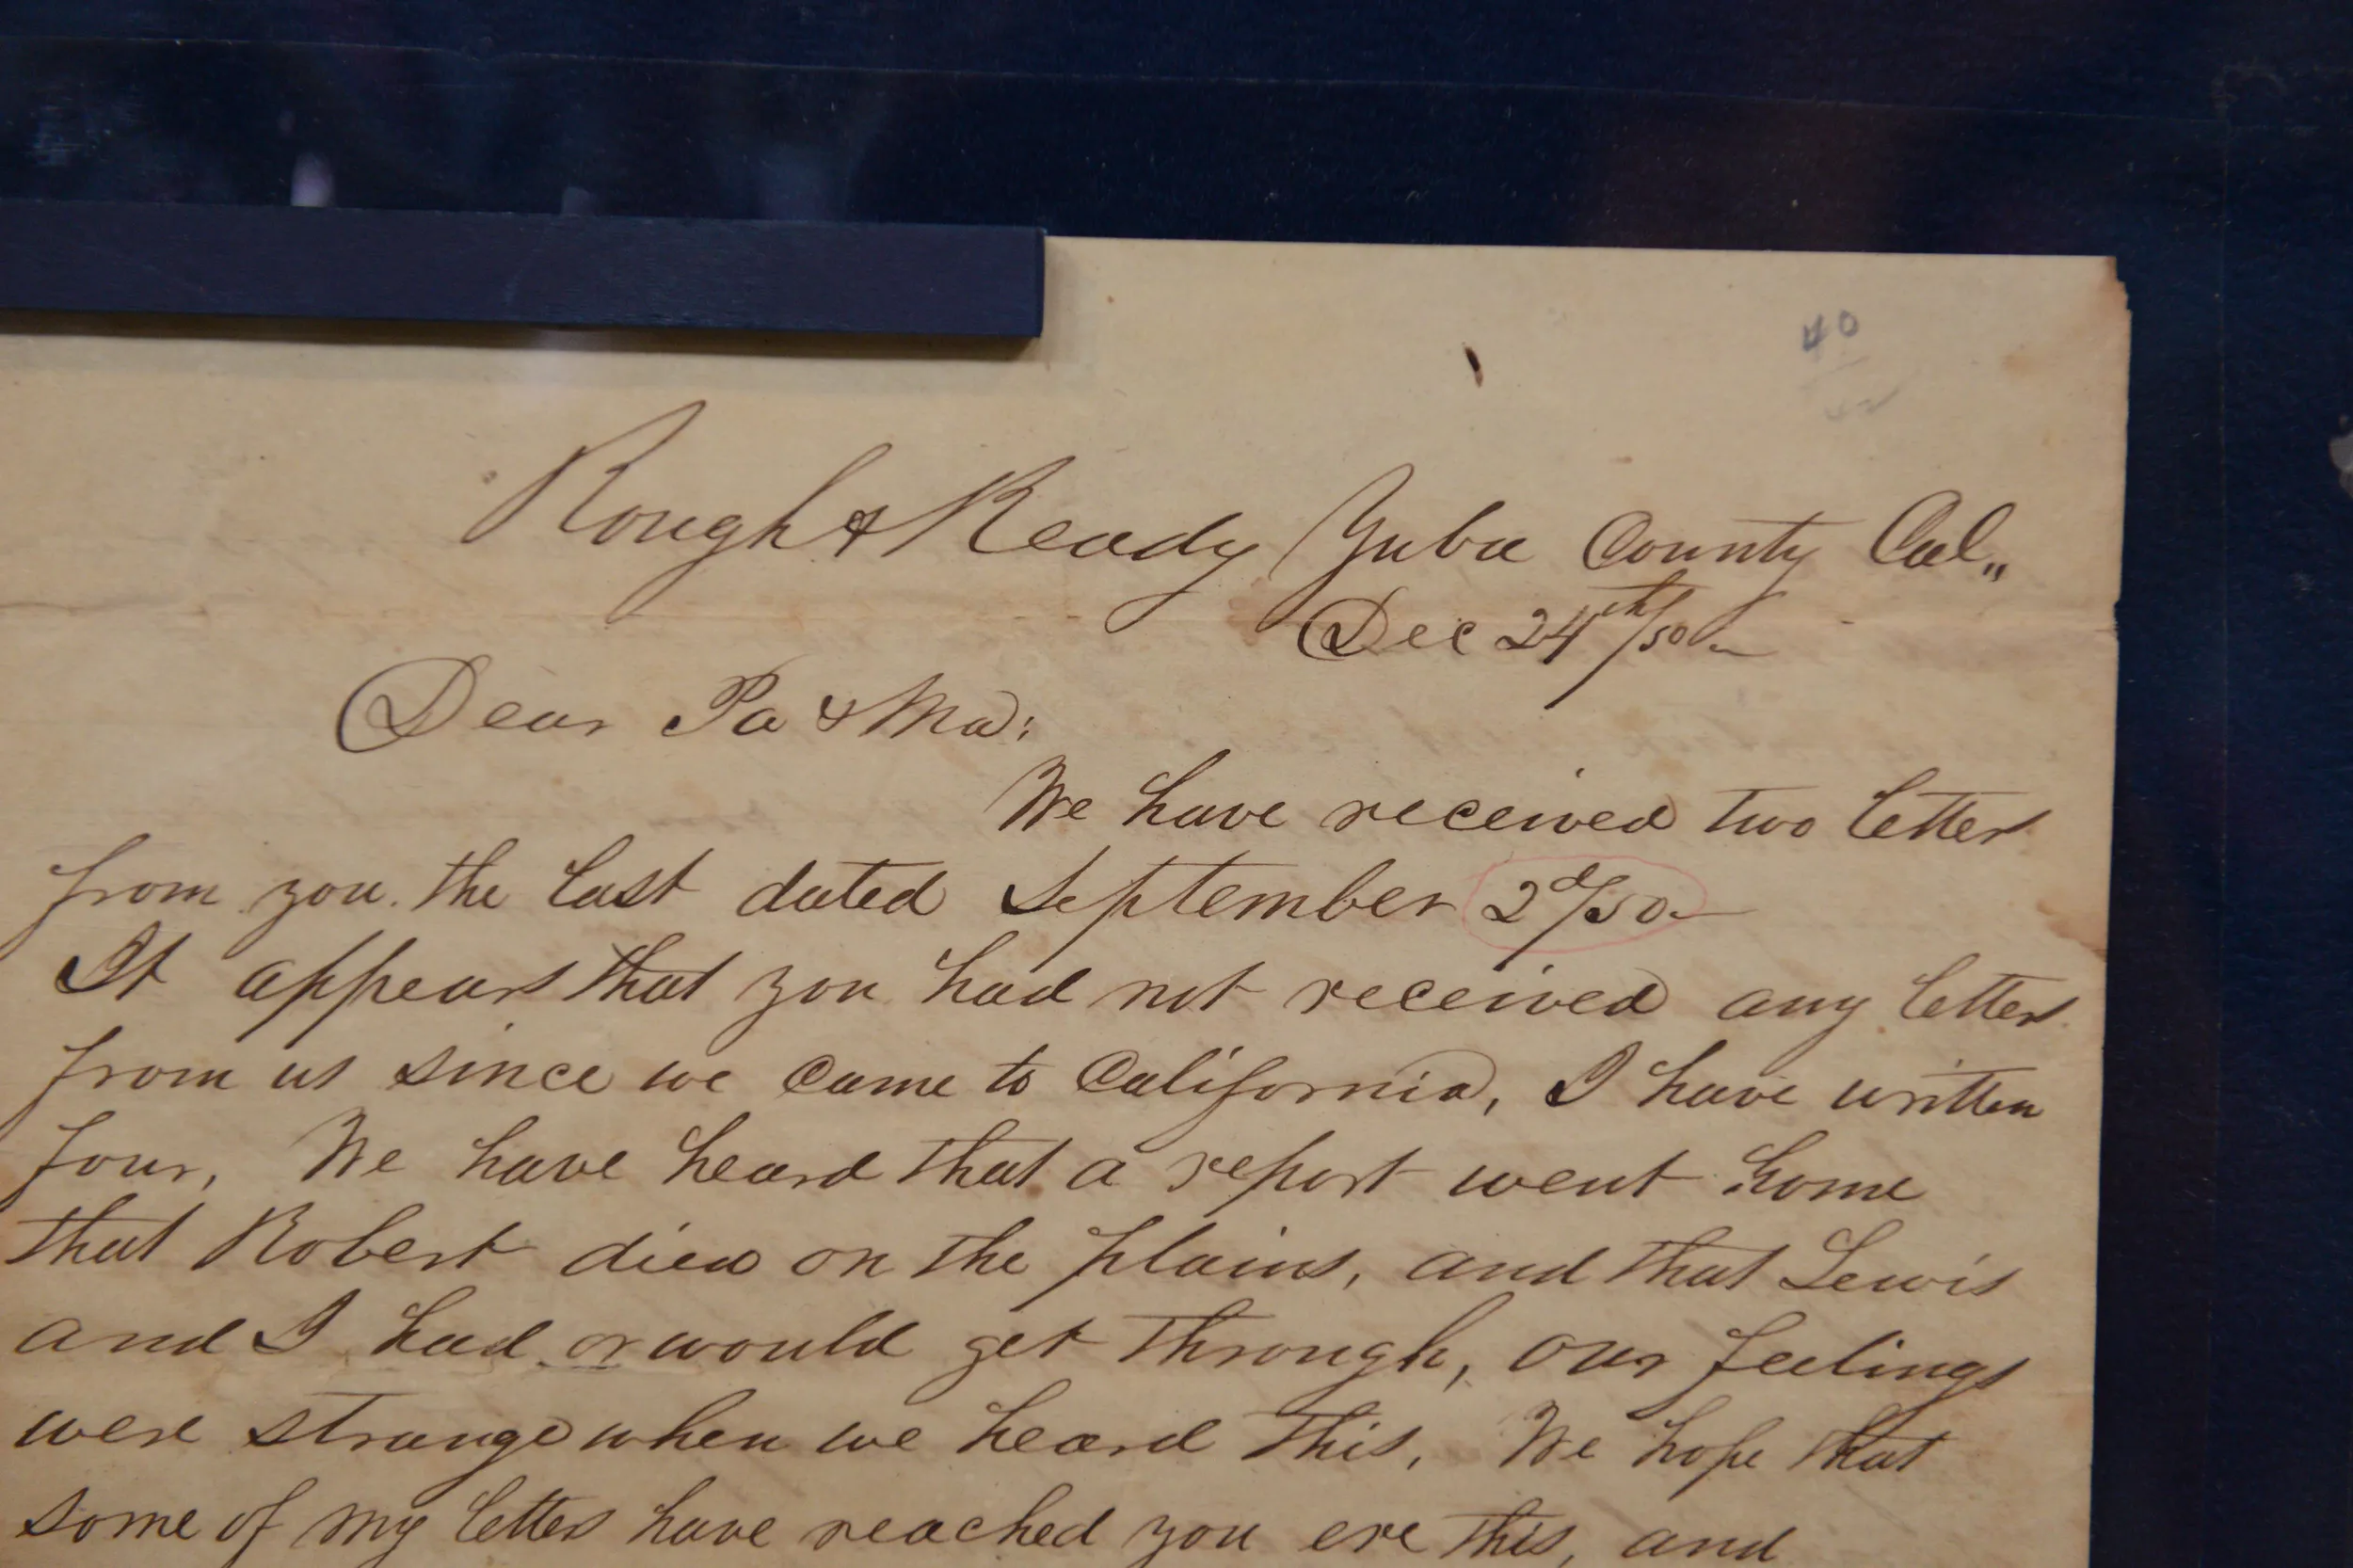 40
Rough & Ready Yuba County Cal„
Dec 24th/50
Dear Pa & Ma:
We have received two letters
from you. the last dated September 2d/50
It appears that you had not received any letters
from us since we came to California, I have written
four, We have heard that a report went home
that Robert died on the plains, and that Lewis
and I had or would get through, our feelings
were strange when we heard this, We hope that
some of my letters have reached you ere this, and